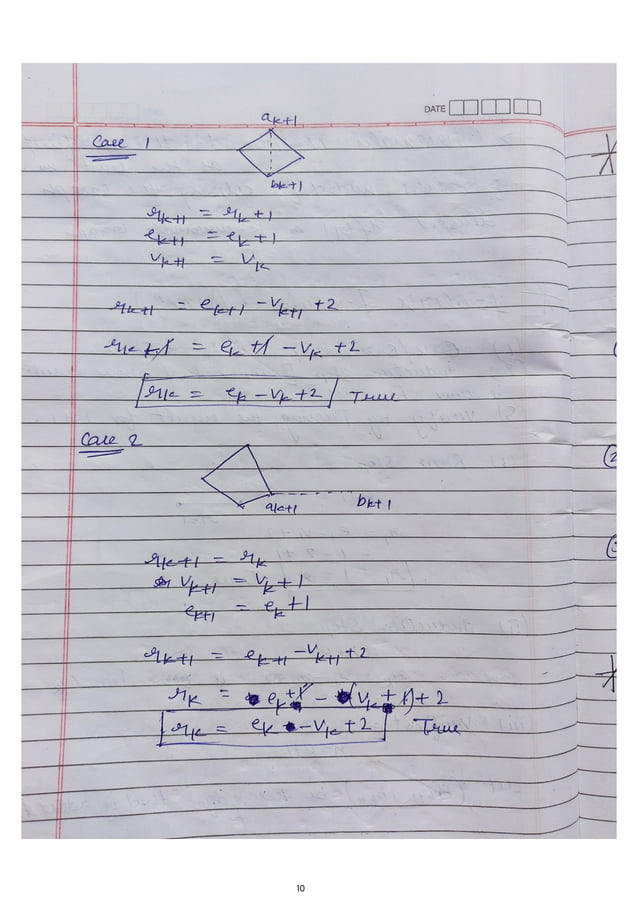 DATE
a_k+1
Case 1
b_k+1
r_k+1 = r_k + 1
e_k+1 = e_k + 1
v_k+1 = v_k
r_k+1 = e_k+1 - v_k+1 + 2
r_k + 1 = e_k + 1 - v_k + 2
r_k = e_k - v_k + 2 True
Case 2
a_k+1 b_k+1
r_k+1 = r_k
v_k+1 = v_k + 1
e_k+1 = e_k + 1
r_k+1 = e_k+1 - v_k+1 + 2
r_k = e_k + 1 - (v_k + 1) + 2
r_k = e_k - v_k + 2 True
10